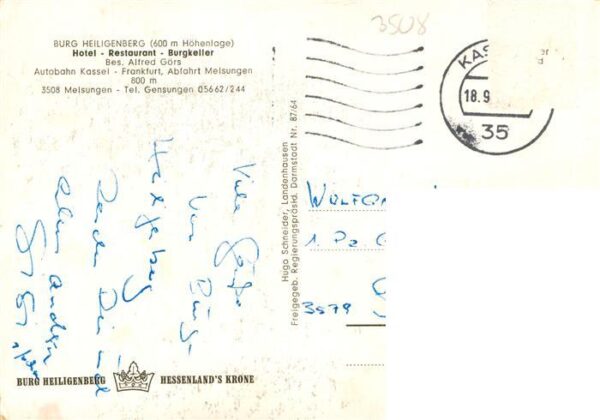 3508
BURG HEILIGENBERG (600 m Höhenlage)
Hotel - Restaurant - Burgkeller
Bes. Alfred Görs
Autobahn Kassel - Frankfurt, Abfahrt Melsungen
800 m
3508 Melsungen - Tel. Gensungen 05662/244
KAS
18.9
35
Viele Grüße
von Burg
Heiligenberg
Hugo Schneider, Landenhausen
Freigegeb. Regierungspräsid. Darmstadt Nr. 87/64
1 Pz
3579
BURG HEILIGENBERG HESSENLAND'S KRONE